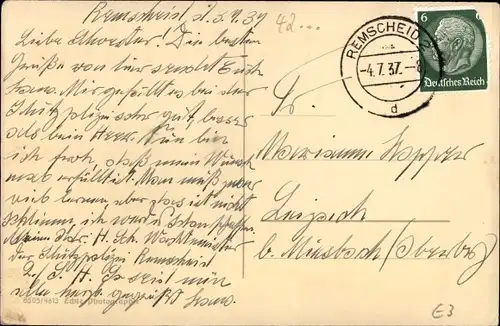 Remscheid, d. 3.7.37
42...
Liebe Schwester! Die besten
Grüße von hier sendet Euch
Hans. Mir gefällt es bei der
Schutzpolizei sehr gut, besser
als beim Heer. Nun bin
ich froh, daß mein Wunsch
erfüllt ist. Man muß zwar
viel lernen, aber das ist nicht
schlimm, ich werde es schon schaffen.
Meine H. Sch. Wachtmeister
der Schutzpolizei Remscheid
So seid nun
alle herzl. gegrüßt Hans.
8505/4613 Echte Photographie
REMSCHEID
-4.7.37.-8
d
6 6
Deutsches Reich
Fr.
Marianne
Leipach
b. Miesbach (Oberby)
E3